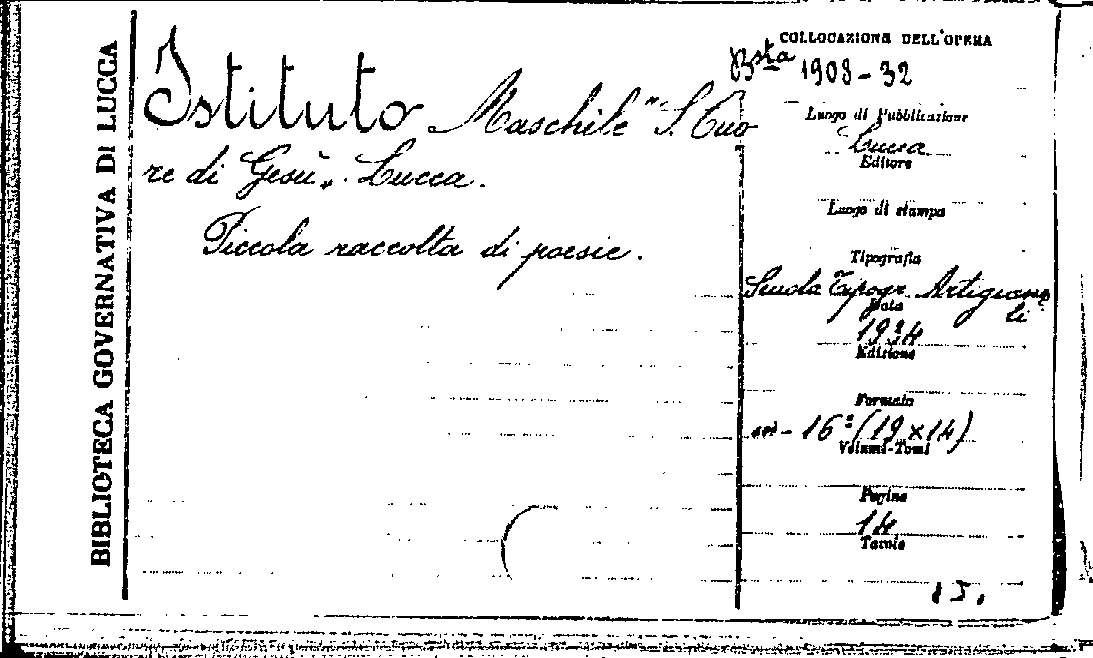 BIBLIOTECA GOVERNATIVA DI LUCCA
Istituto Maschile "S. Cuo
re di Gesù". Lucca.
Piccola raccolta di poesie.
COLLOCAZIONE DELL'OPERA
Bsta 1908-32
Luogo di Pubblicazione
Lucca
Editore
Luogo di stampa
Tipografia
Scuola Tipogr. Artigianel
li
Data
1934
Edizione
Formato
in-16º (19 x 14)
Volumi-Tomi
Pagine
14
Tavole